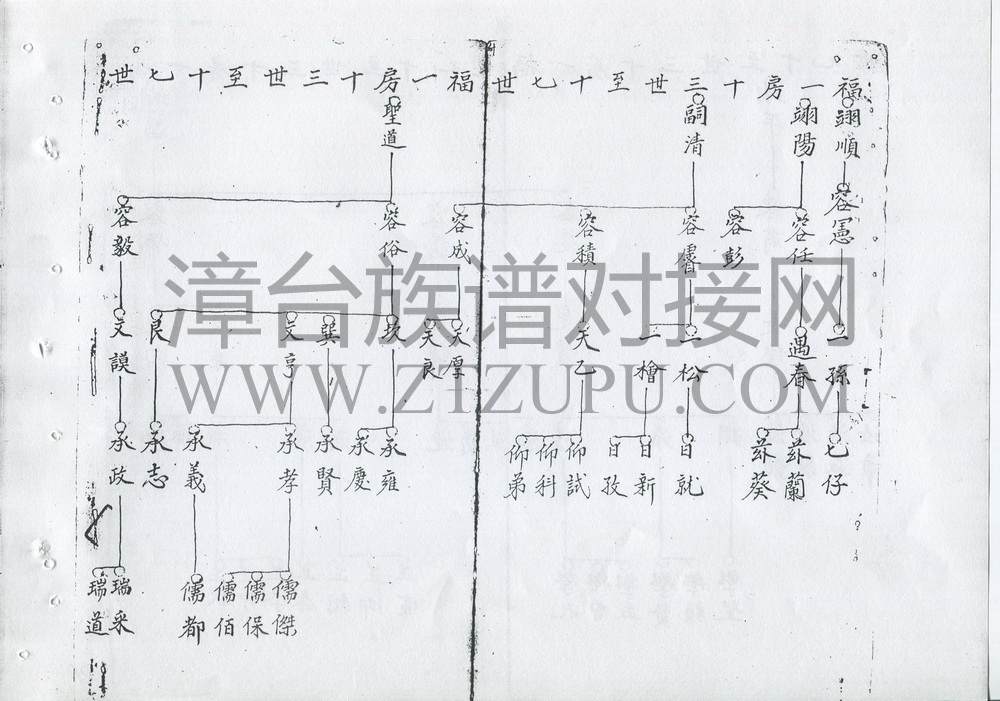 福一房十三世至十七世
福一房十三世至十七世
翊順
翊陽
嗣清
聖道
容憲
容任
容彭
容睿
容積
容成
容俗
容毅
二孫
遇春
二松
二檜
天乙
天厚
天良
坎
巽
文亨
艮
文謨
七仔
茲蘭
茲葵
日就
日新
日孜
仰試
仰科
仰弟
承雍
承慶
承賢
承孝
承義
承志
承政
儒傑
儒保
儒佰
儒都
瑞采
瑞道
漳台族谱对接网
WWW.ZTZUPU.COM